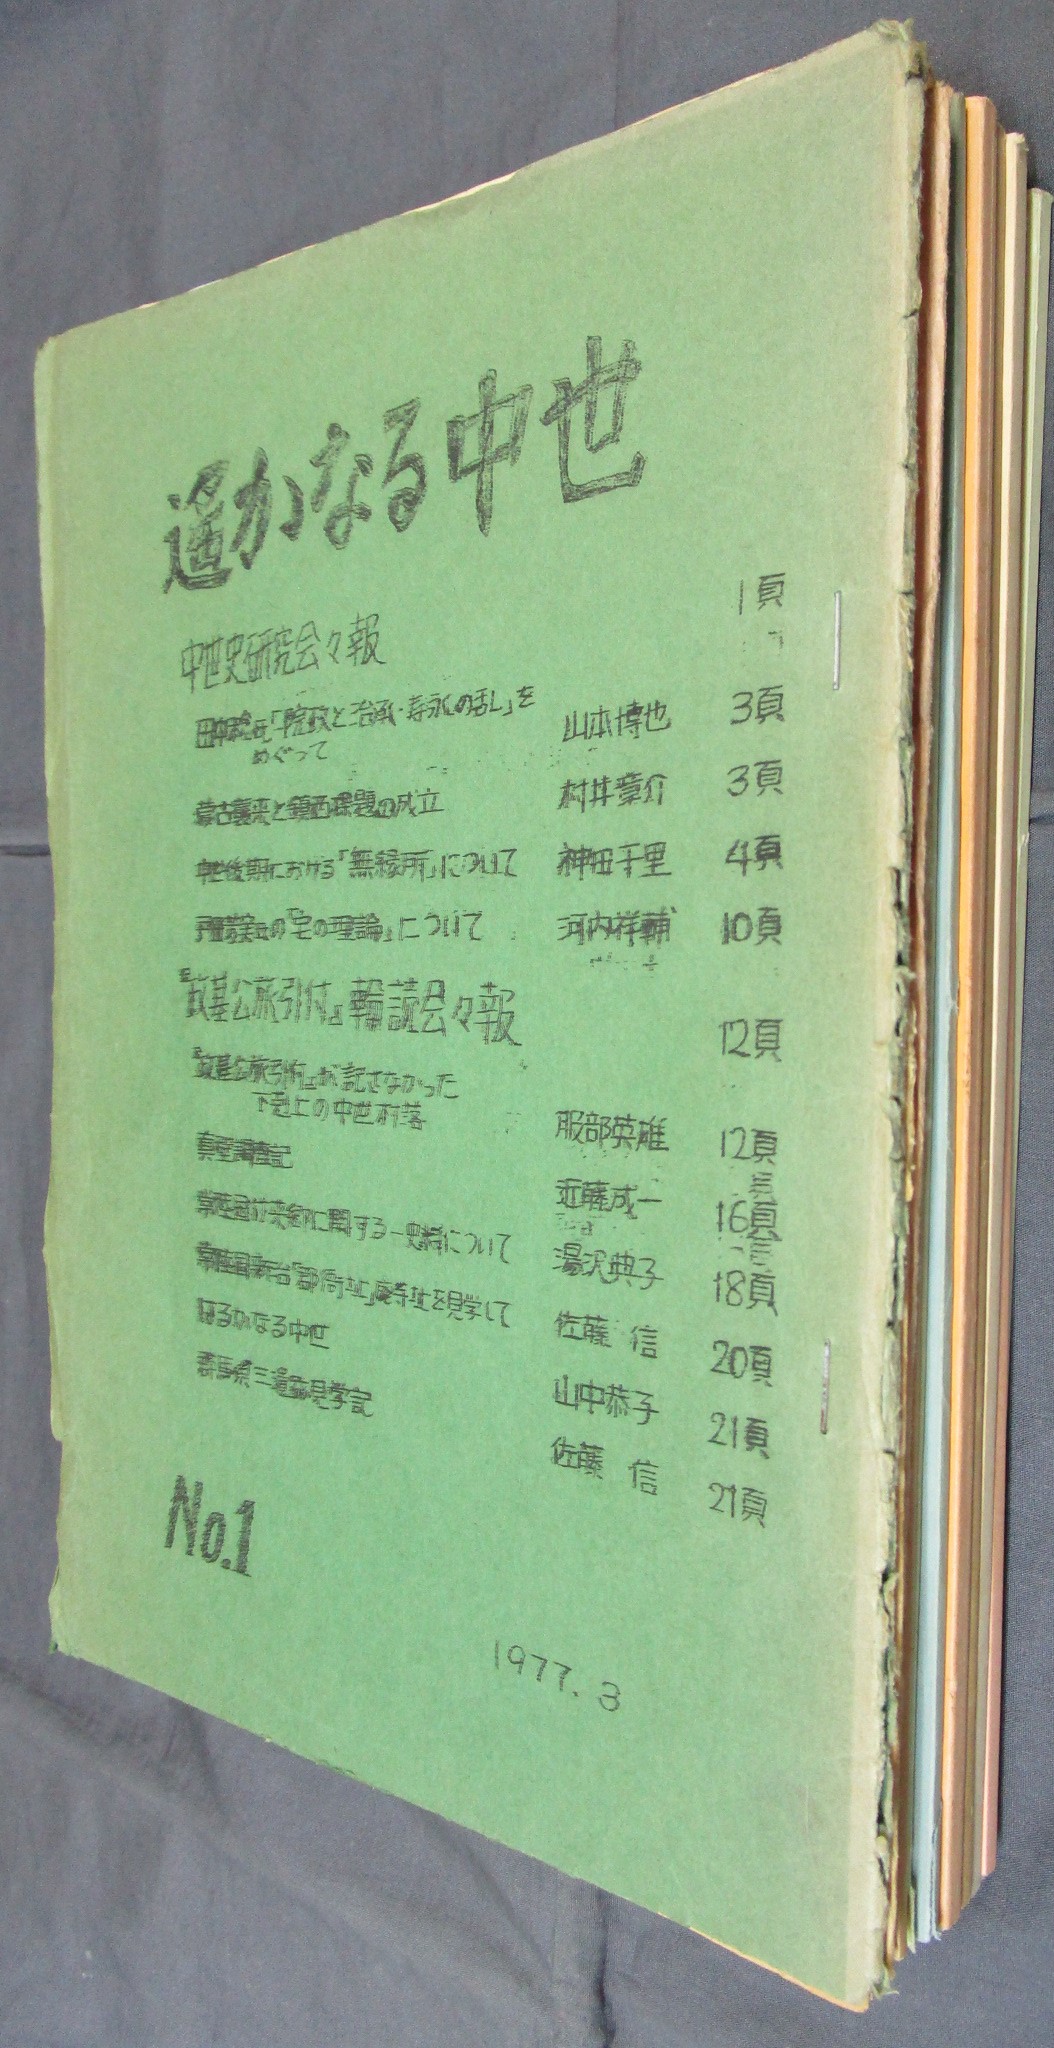 遥かなる中世
中世史研究会々報 1頁
「院政と治承・寿永の乱」を 山本博也 3頁
めぐって
蒙古襲来と鎮西探題の成立 村井章介 3頁
中世後期における「無縁所」について 神田千里 4頁
「宅の理論」について 河内祥輔 10頁
『政基公旅引付』輪読会々報 12頁
『政基公旅引付』が記さなかった
下剋上の中世村落 服部英雄 12頁
調査記 近藤成一 16頁
に関する一史料について 湯沢典子 18頁
廃寺址を見学して 佐藤 信 20頁
はるかなる中世 山中恭子 21頁
群馬県三遺跡見学記 佐藤 信 21頁
No.1
1977.3